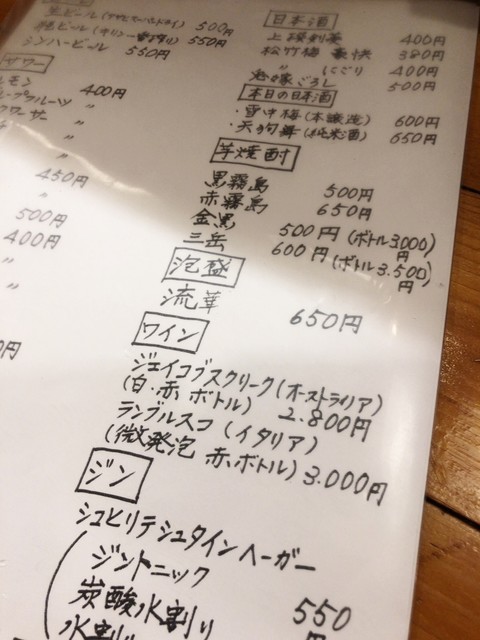 生ビール(アサヒスーパードライ) 500円
瓶ビール(キリン一番搾り) 550円
シンハービール 550円
サワー
レモン 400円
グレープフルーツ 〃
〃
〃
〃
450円
500円
400円
〃
〃
日本酒
上撰剣菱 400円
松竹梅 豪快 380円
〃 にごり 400円
兄嫁ごろし 500円
本日の日本酒
・雪中梅(本醸造) 600円
・天狗舞(純米酒) 650円
芋焼酎
黒霧島 500円
赤霧島 650円
金黒 500円(ボトル3000円)
三岳 600円(ボトル3.500円)
泡盛
流華 650円
ワイン
ジェイコブスクリーク(オーストラリア)
(白・赤 ボトル) 2.800円
ランブルスコ(イタリア)
(微発泡 赤、ボトル) 3.000円
ジン
シュヒリテシュタインヘーガー
(ジントニック
炭酸水割り 550円
水割り